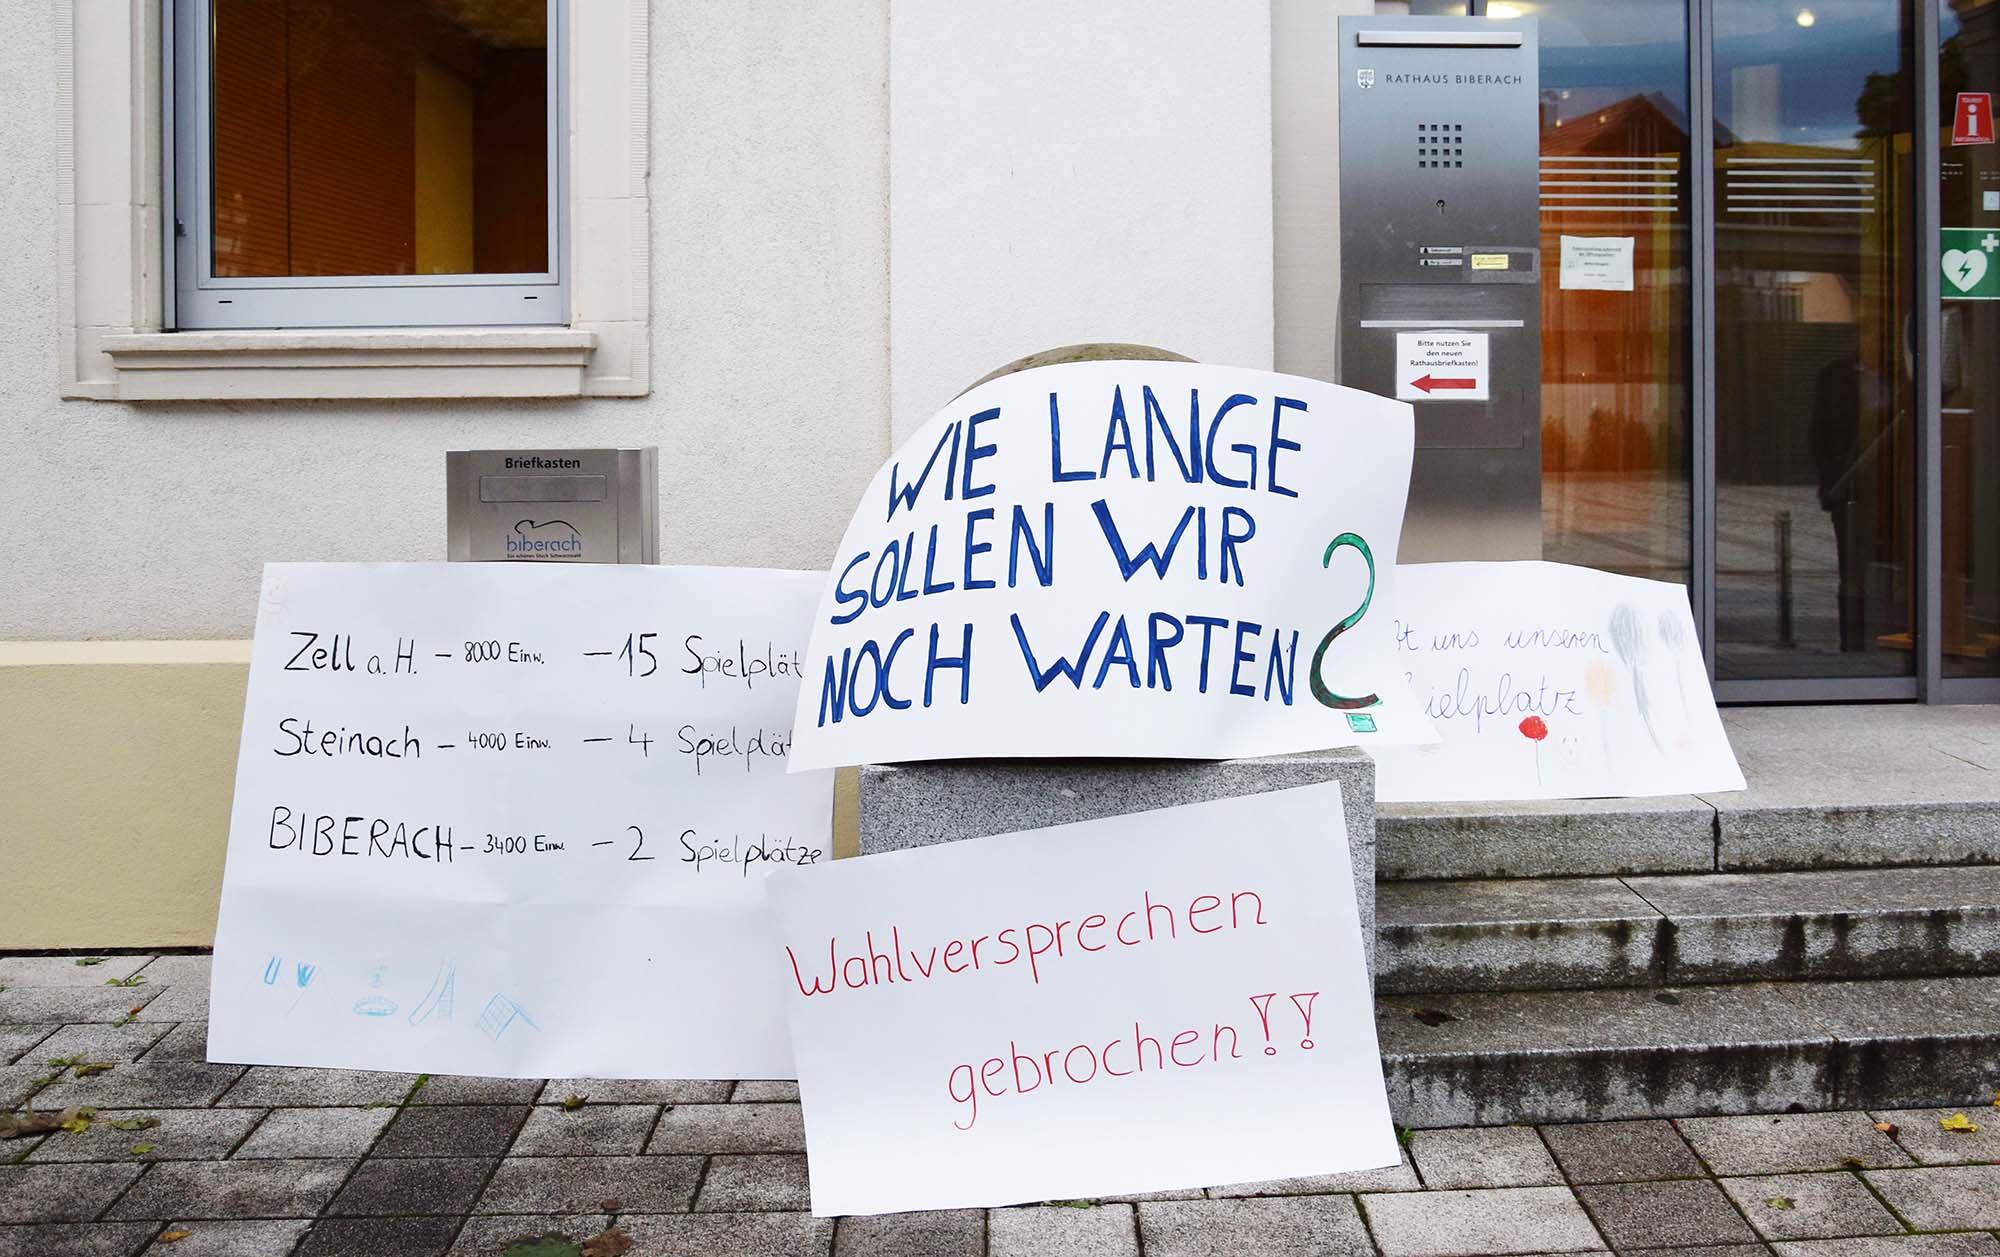 RATHAUS BIBERACH
TOURIST
i
INFORMATION
Bitte nutzen Sie
den neuen
Rathausbriefkasten!
Briefkasten
biberach
Ein schönes Stück Schwarzwald
WIE LANGE
SOLLEN WIR
NOCH WARTEN?
Zell a. H. – 8000 Einw. – 15 Spielplät
Steinach – 4000 Einw. – 4 Spielplät
BIBERACH – 3400 Einw. – 2 Spielplätze
uns unseren
ielplatz
Wahlversprechen
gebrochen!!